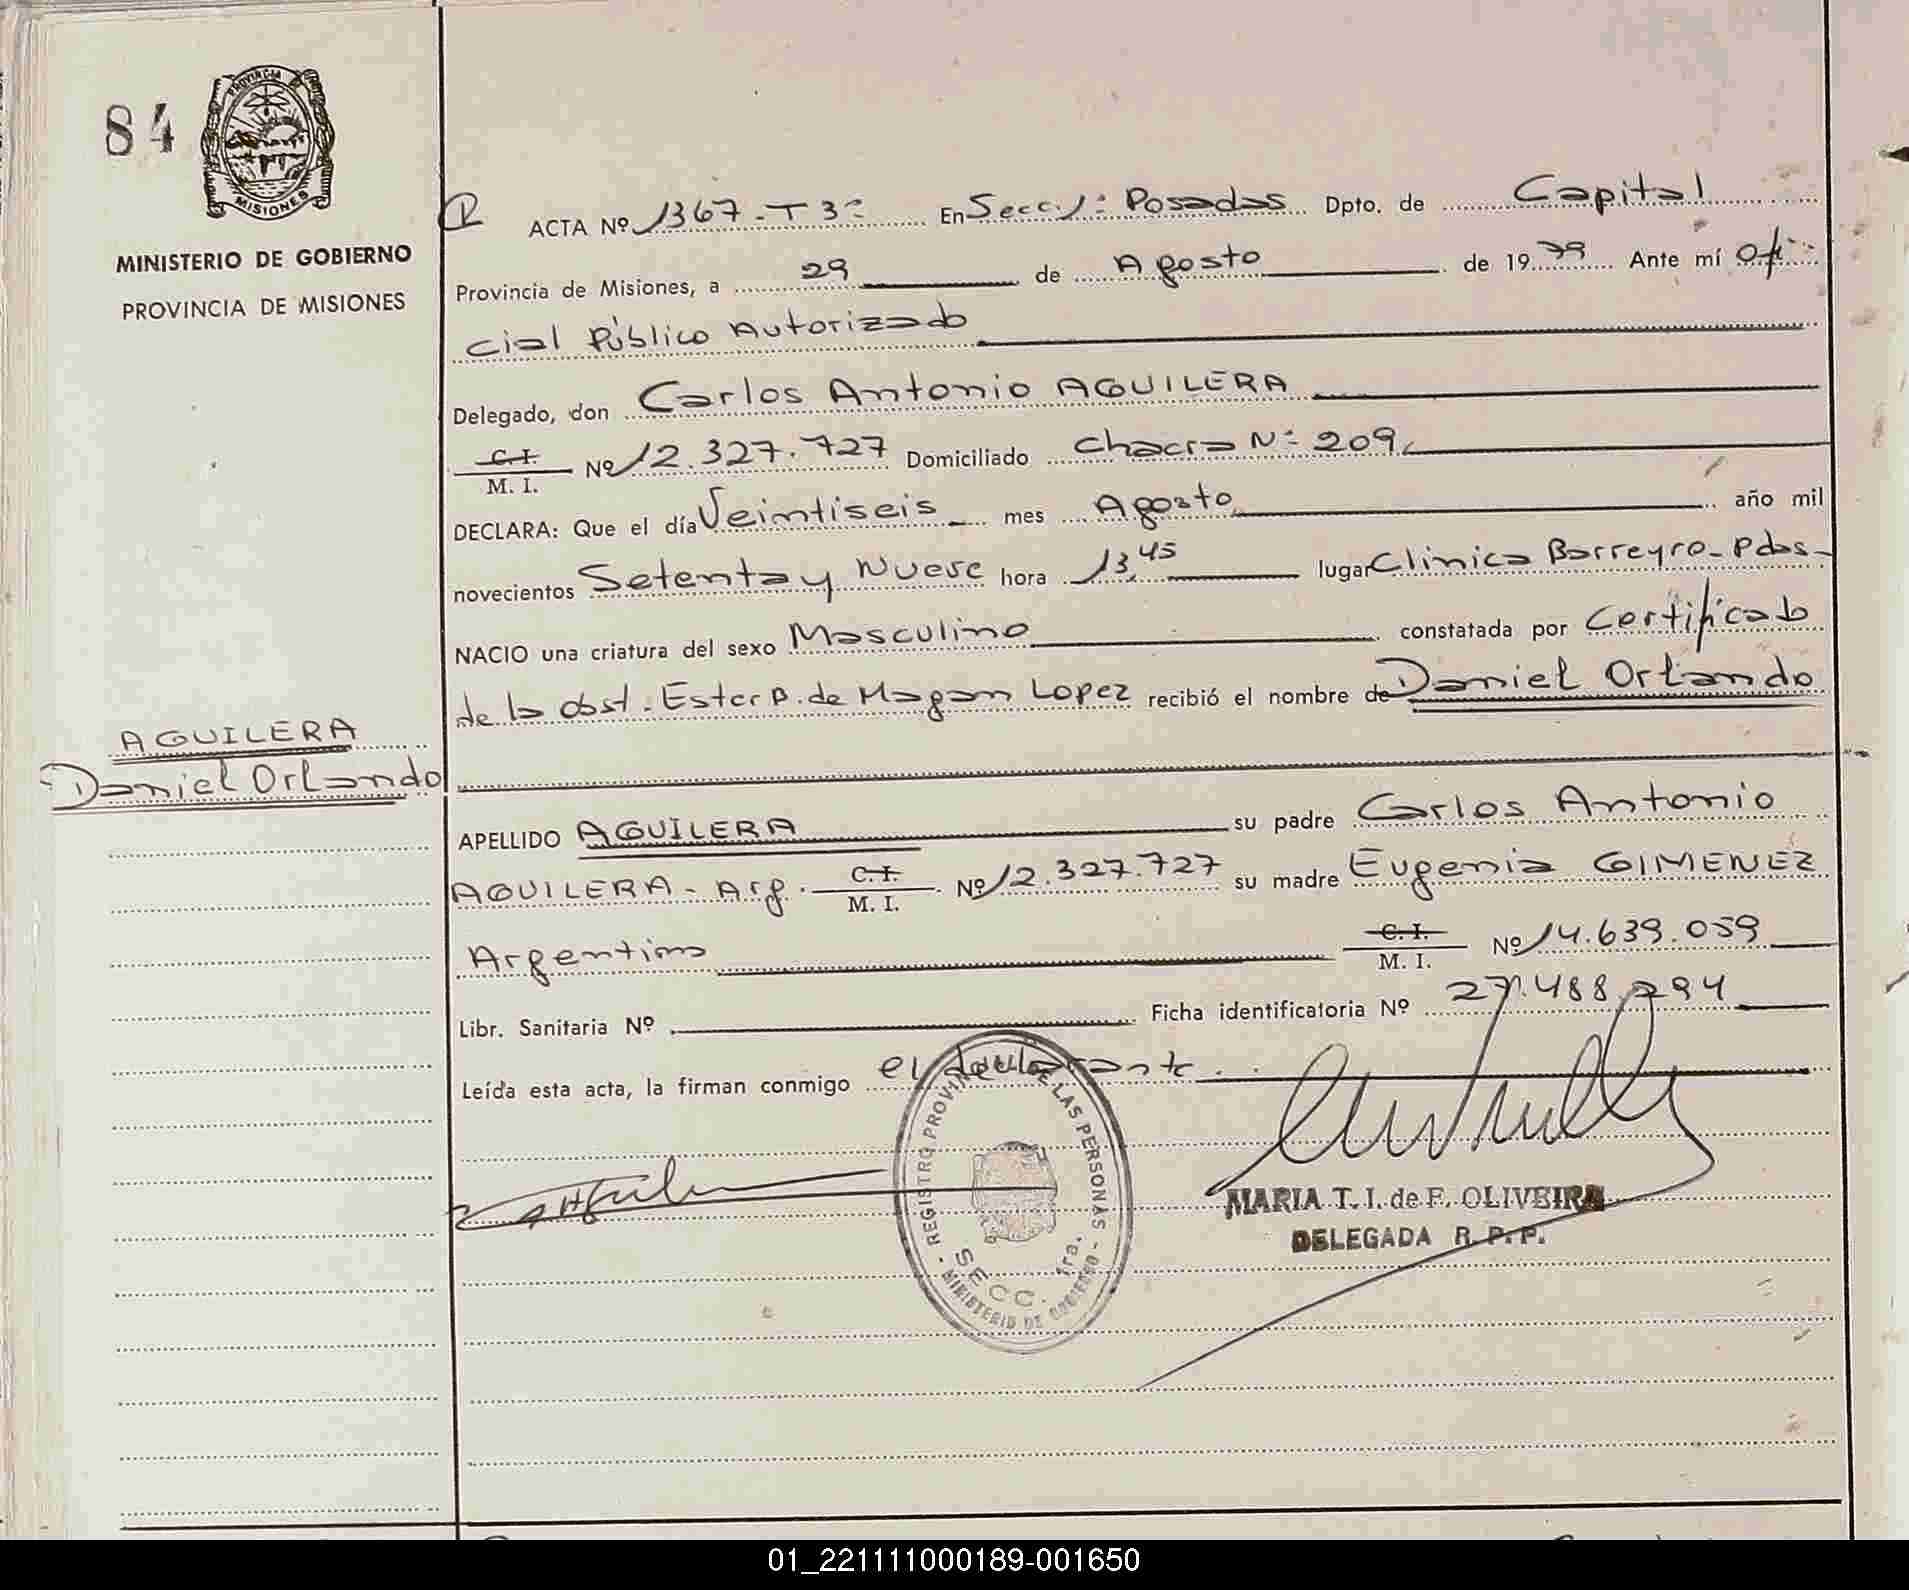 84
PROVINCIA DE
MISIONES
MINISTERIO DE GOBIERNO
PROVINCIA DE MISIONES
ACTA Nº 1367 - T 3º En Secc. 1ª Posadas Dpto. de Capital
Provincia de Misiones, a 29 de Agosto de 1979 Ante mí Ofi-
cial Público Autorizado
Delegado, don Carlos Antonio AGUILERA
C. I.
M. I. Nº 12.327.727 Domiciliado Chacra Nº 209
DECLARA: Que el día Veintiseis mes Agosto año mil
novecientos Setenta y Nueve hora 13,45 lugar Clinica Barreyro - Pdas -
NACIO una criatura del sexo Masculino constatada por Certificado
de la obst. Ester B. de Magan Lopez recibió el nombre de Daniel Orlando
AGUILERA
Daniel Orlando
APELLIDO AGUILERA su padre Carlos Antonio
AGUILERA - Arg. C. I. M. I. Nº 12.327.727 su madre Eugenia GIMENEZ
Argentina C. I. M. I. Nº 14.639.059
Libr. Sanitaria Nº Ficha identificatoria Nº 27.488.294
Leída esta acta, la firman conmigo el declarante
REGISTRO PROVINCIAL DE LAS PERSONAS
SECC. 1ra.
MINISTERIO DE GOBIERNO
MARIA T. I. de F. OLIVEIRA
DELEGADA R. P. P.
01_221111000189-001650